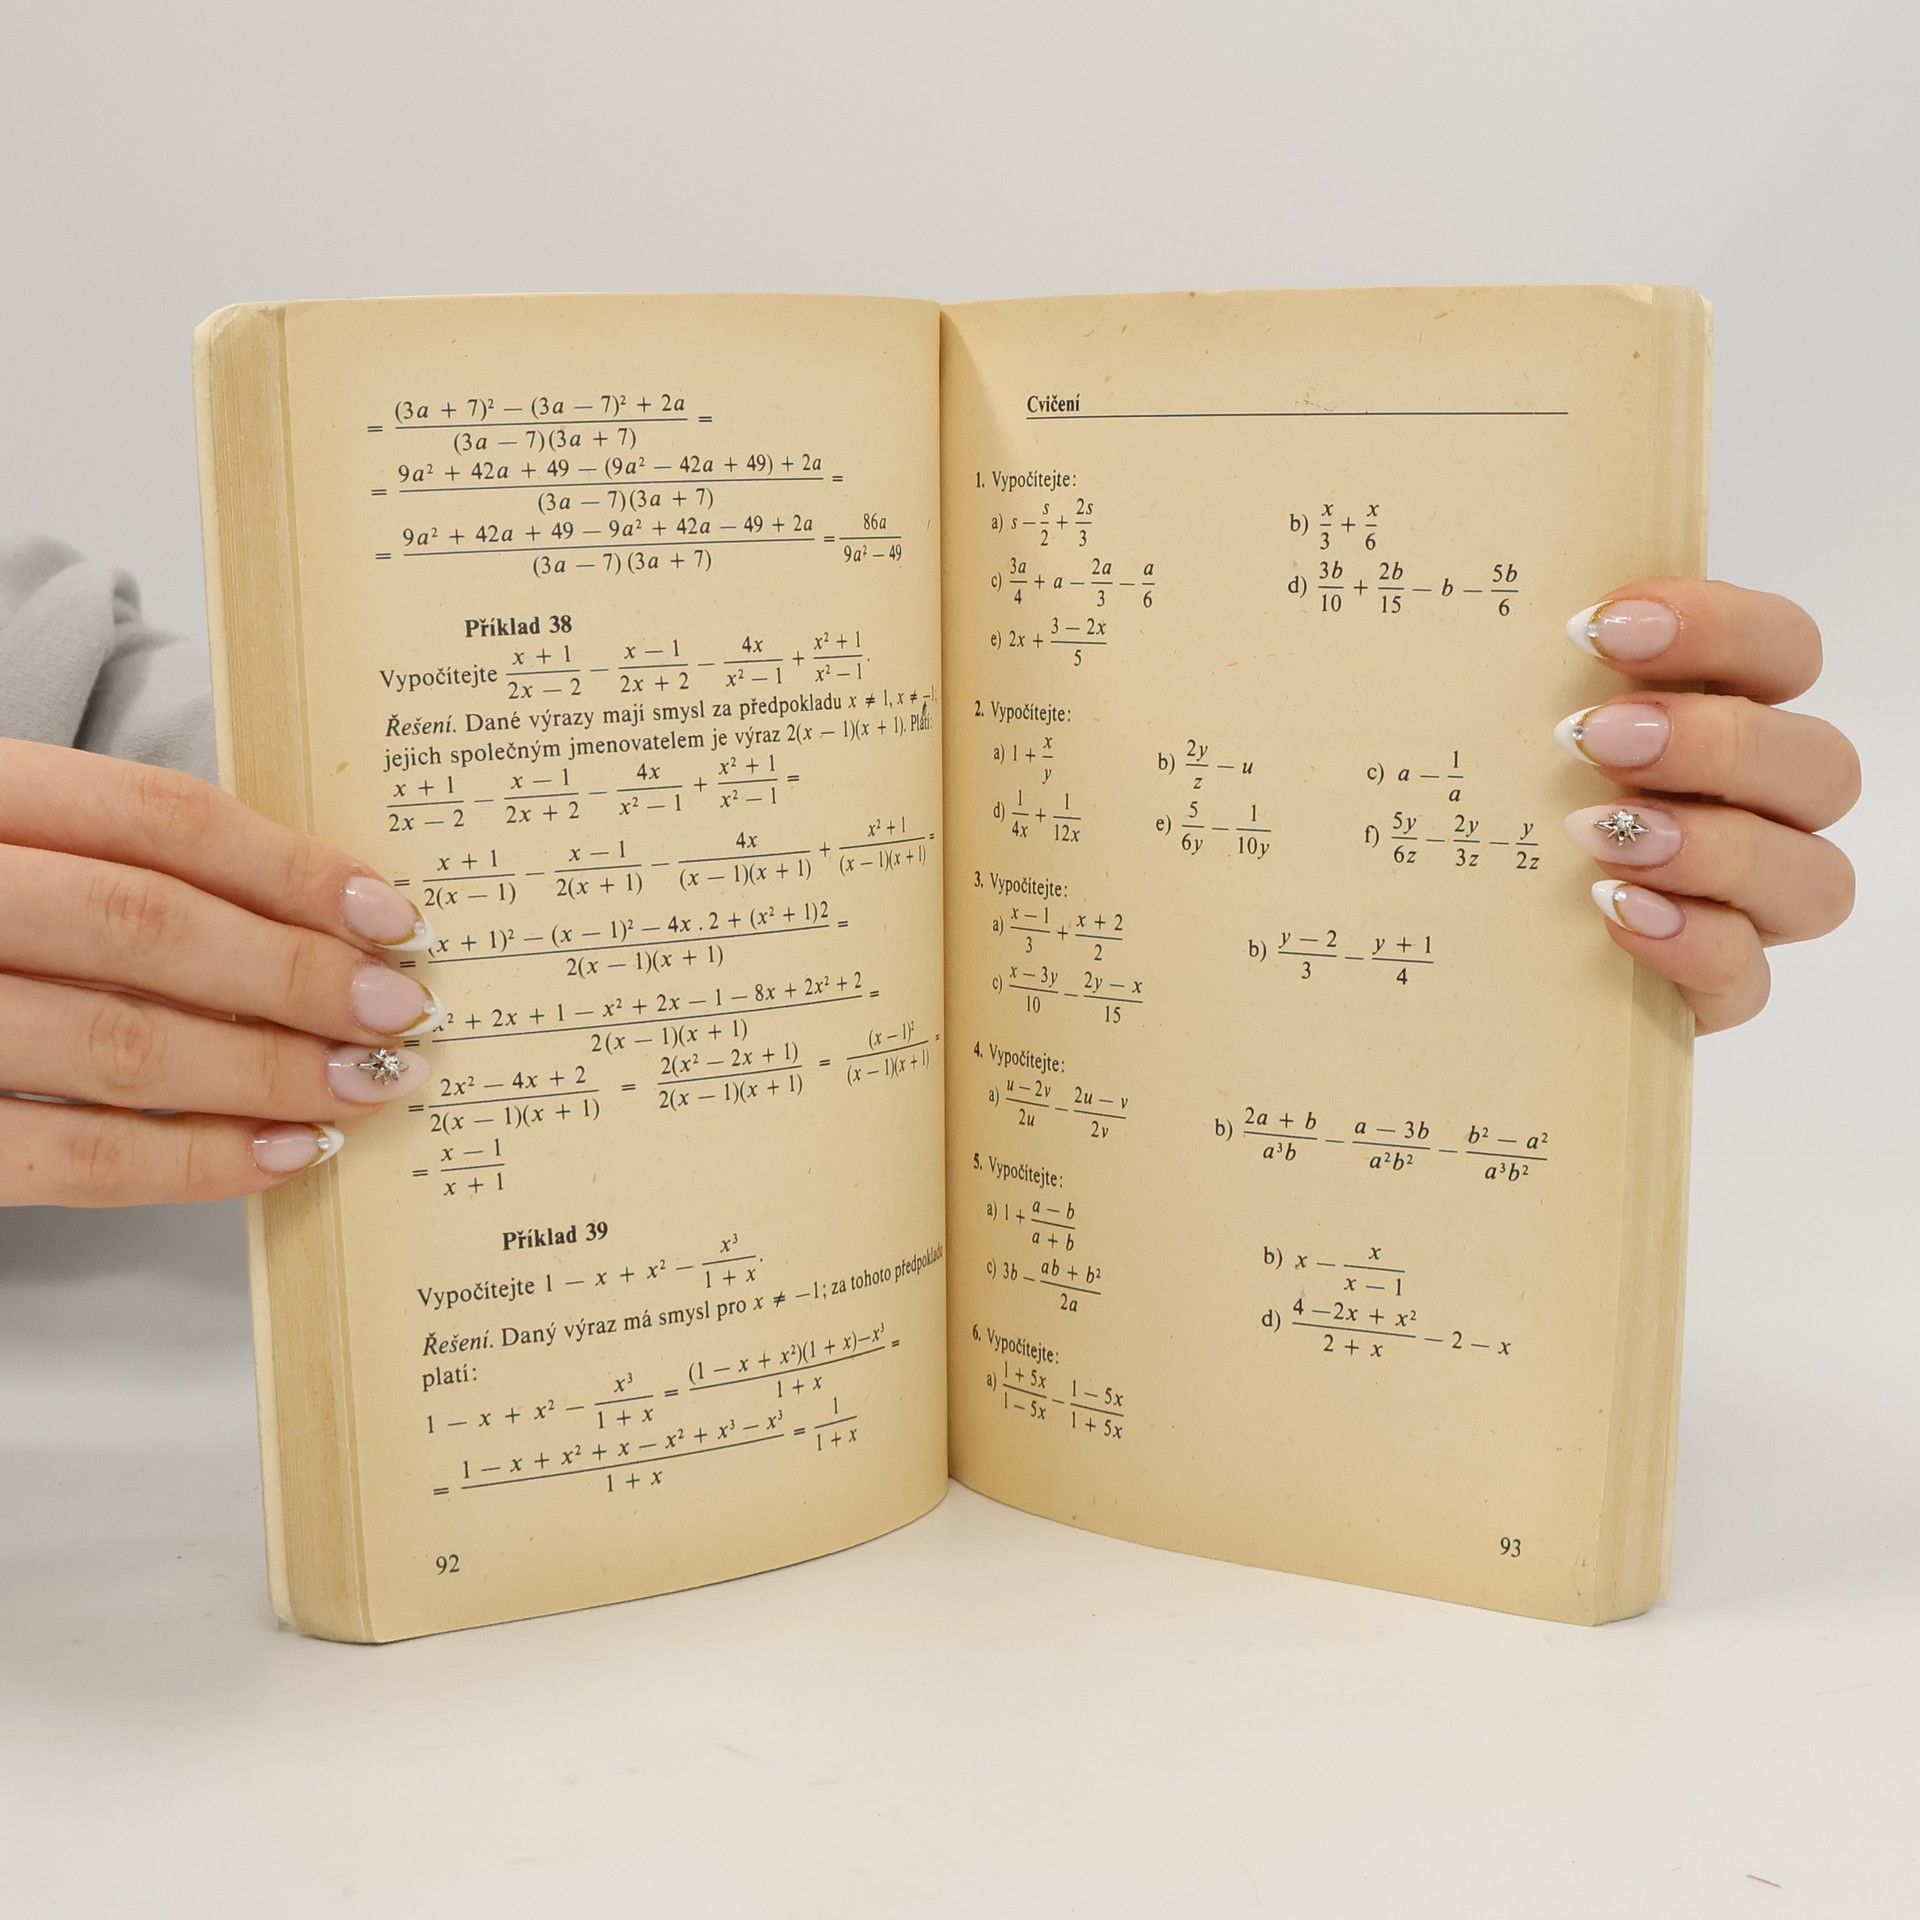 = ((3a + 7)² − (3a − 7)² + 2a) / ((3a − 7)(3a + 7)) =
= (9a² + 42a + 49 − (9a² − 42a + 49) + 2a) / ((3a − 7)(3a + 7)) =
= (9a² + 42a + 49 − 9a² + 42a − 49 + 2a) / ((3a − 7)(3a + 7)) = 86a / (9a² − 49)
Příklad 38
Vypočítejte (x + 1)/(2x − 2) − (x − 1)/(2x + 2) − 4x/(x² − 1) + (x² + 1)/(x² − 1).
Řešení. Dané výrazy mají smysl za předpokladu x ≠ 1, x ≠ −1;
jejich společným jmenovatelem je výraz 2(x − 1)(x + 1). Platí:
(x + 1)/(2x − 2) − (x − 1)/(2x + 2) − 4x/(x² − 1) + (x² + 1)/(x² − 1) =
= (x + 1)/(2(x − 1)) − (x − 1)/(2(x + 1)) − 4x/((x − 1)(x + 1)) + (x² + 1)/((x − 1)(x + 1)) =
= ((x + 1)² − (x − 1)² − 4x . 2 + (x² + 1)2) / (2(x − 1)(x + 1)) =
= (x² + 2x + 1 − x² + 2x − 1 − 8x + 2x² + 2) / (2(x − 1)(x + 1)) =
= (2x² − 4x + 2)/(2(x − 1)(x + 1)) = 2(x² − 2x + 1)/(2(x − 1)(x + 1)) = (x − 1)²/((x − 1)(x + 1)) =
= (x − 1)/(x + 1)
Příklad 39
Vypočítejte 1 − x + x² − x³/(1 + x).
Řešení. Daný výraz má smysl pro x ≠ −1; za tohoto předpokladu
platí:
1 − x + x² − x³/(1 + x) = ((1 − x + x²)(1 + x) − x³)/(1 + x) =
= (1 − x + x² + x − x² + x³ − x³)/(1 + x) = 1/(1 + x)
92
Cvičení
1. Vypočítejte:
a) s − s/2 + 2s/3 b) x/3 + x/6
c) 3a/4 + a − 2a/3 − a/6 d) 3b/10 + 2b/15 − b − 5b/6
e) 2x + (3 − 2x)/5
2. Vypočítejte:
a) 1 + x/y b) 2y/z − u c) a − 1/a
d) 1/4x + 1/12x e) 5/6y − 1/10y f) 5y/6z − 2y/3z − y/2z
3. Vypočítejte:
a) (x − 1)/3 + (x + 2)/2 b) (y − 2)/3 − (y + 1)/4
c) (x − 3y)/10 − (2y − x)/15
4. Vypočítejte:
a) (u − 2v)/2u − (2u − v)/2v b) (2a + b)/a³b − (a − 3b)/a²b² − (b² − a²)/a³b²
5. Vypočítejte:
a) 1 + (a − b)/(a + b) b) x − x/(x − 1)
c) 3b − (ab + b²)/2a d) (4 − 2x + x²)/(2 + x) − 2 − x
6. Vypočítejte:
a) (1 + 5x)/(1 − 5x) − (1 − 5x)/(1 + 5x)
93